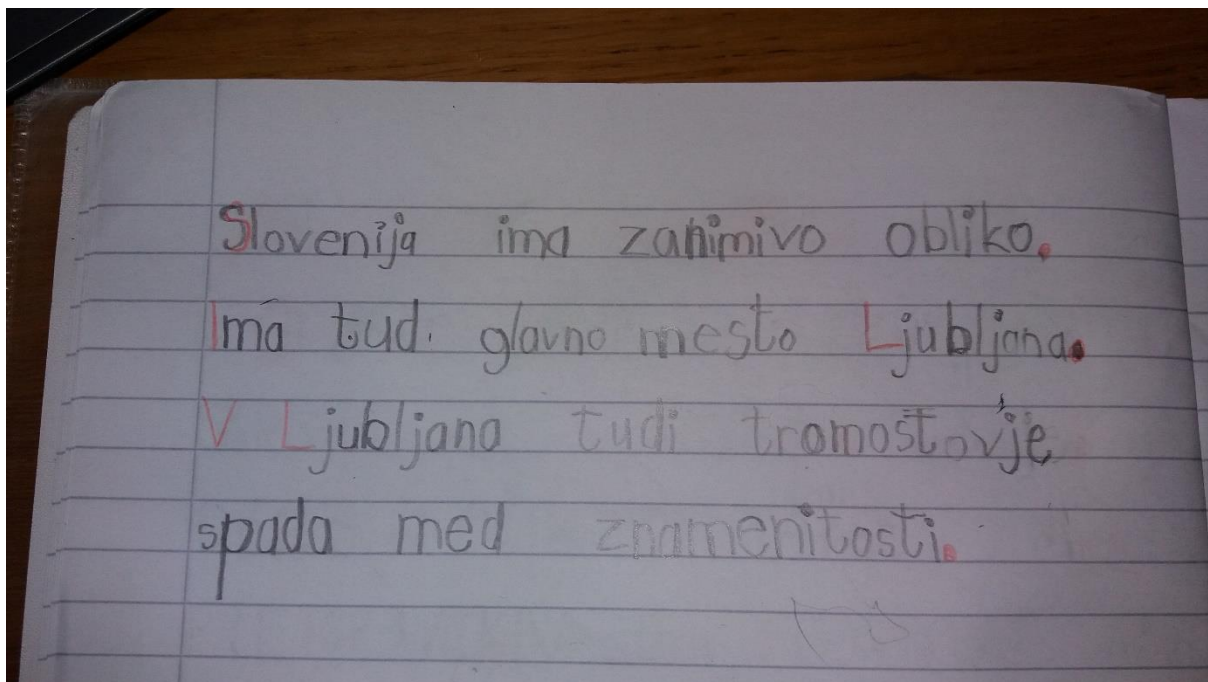 Slovenija ima zanimivo obliko.
Ima tudi glavno mesto Ljubljana.
V Ljubljana tudi tromostovje
spada med znamenitosti.